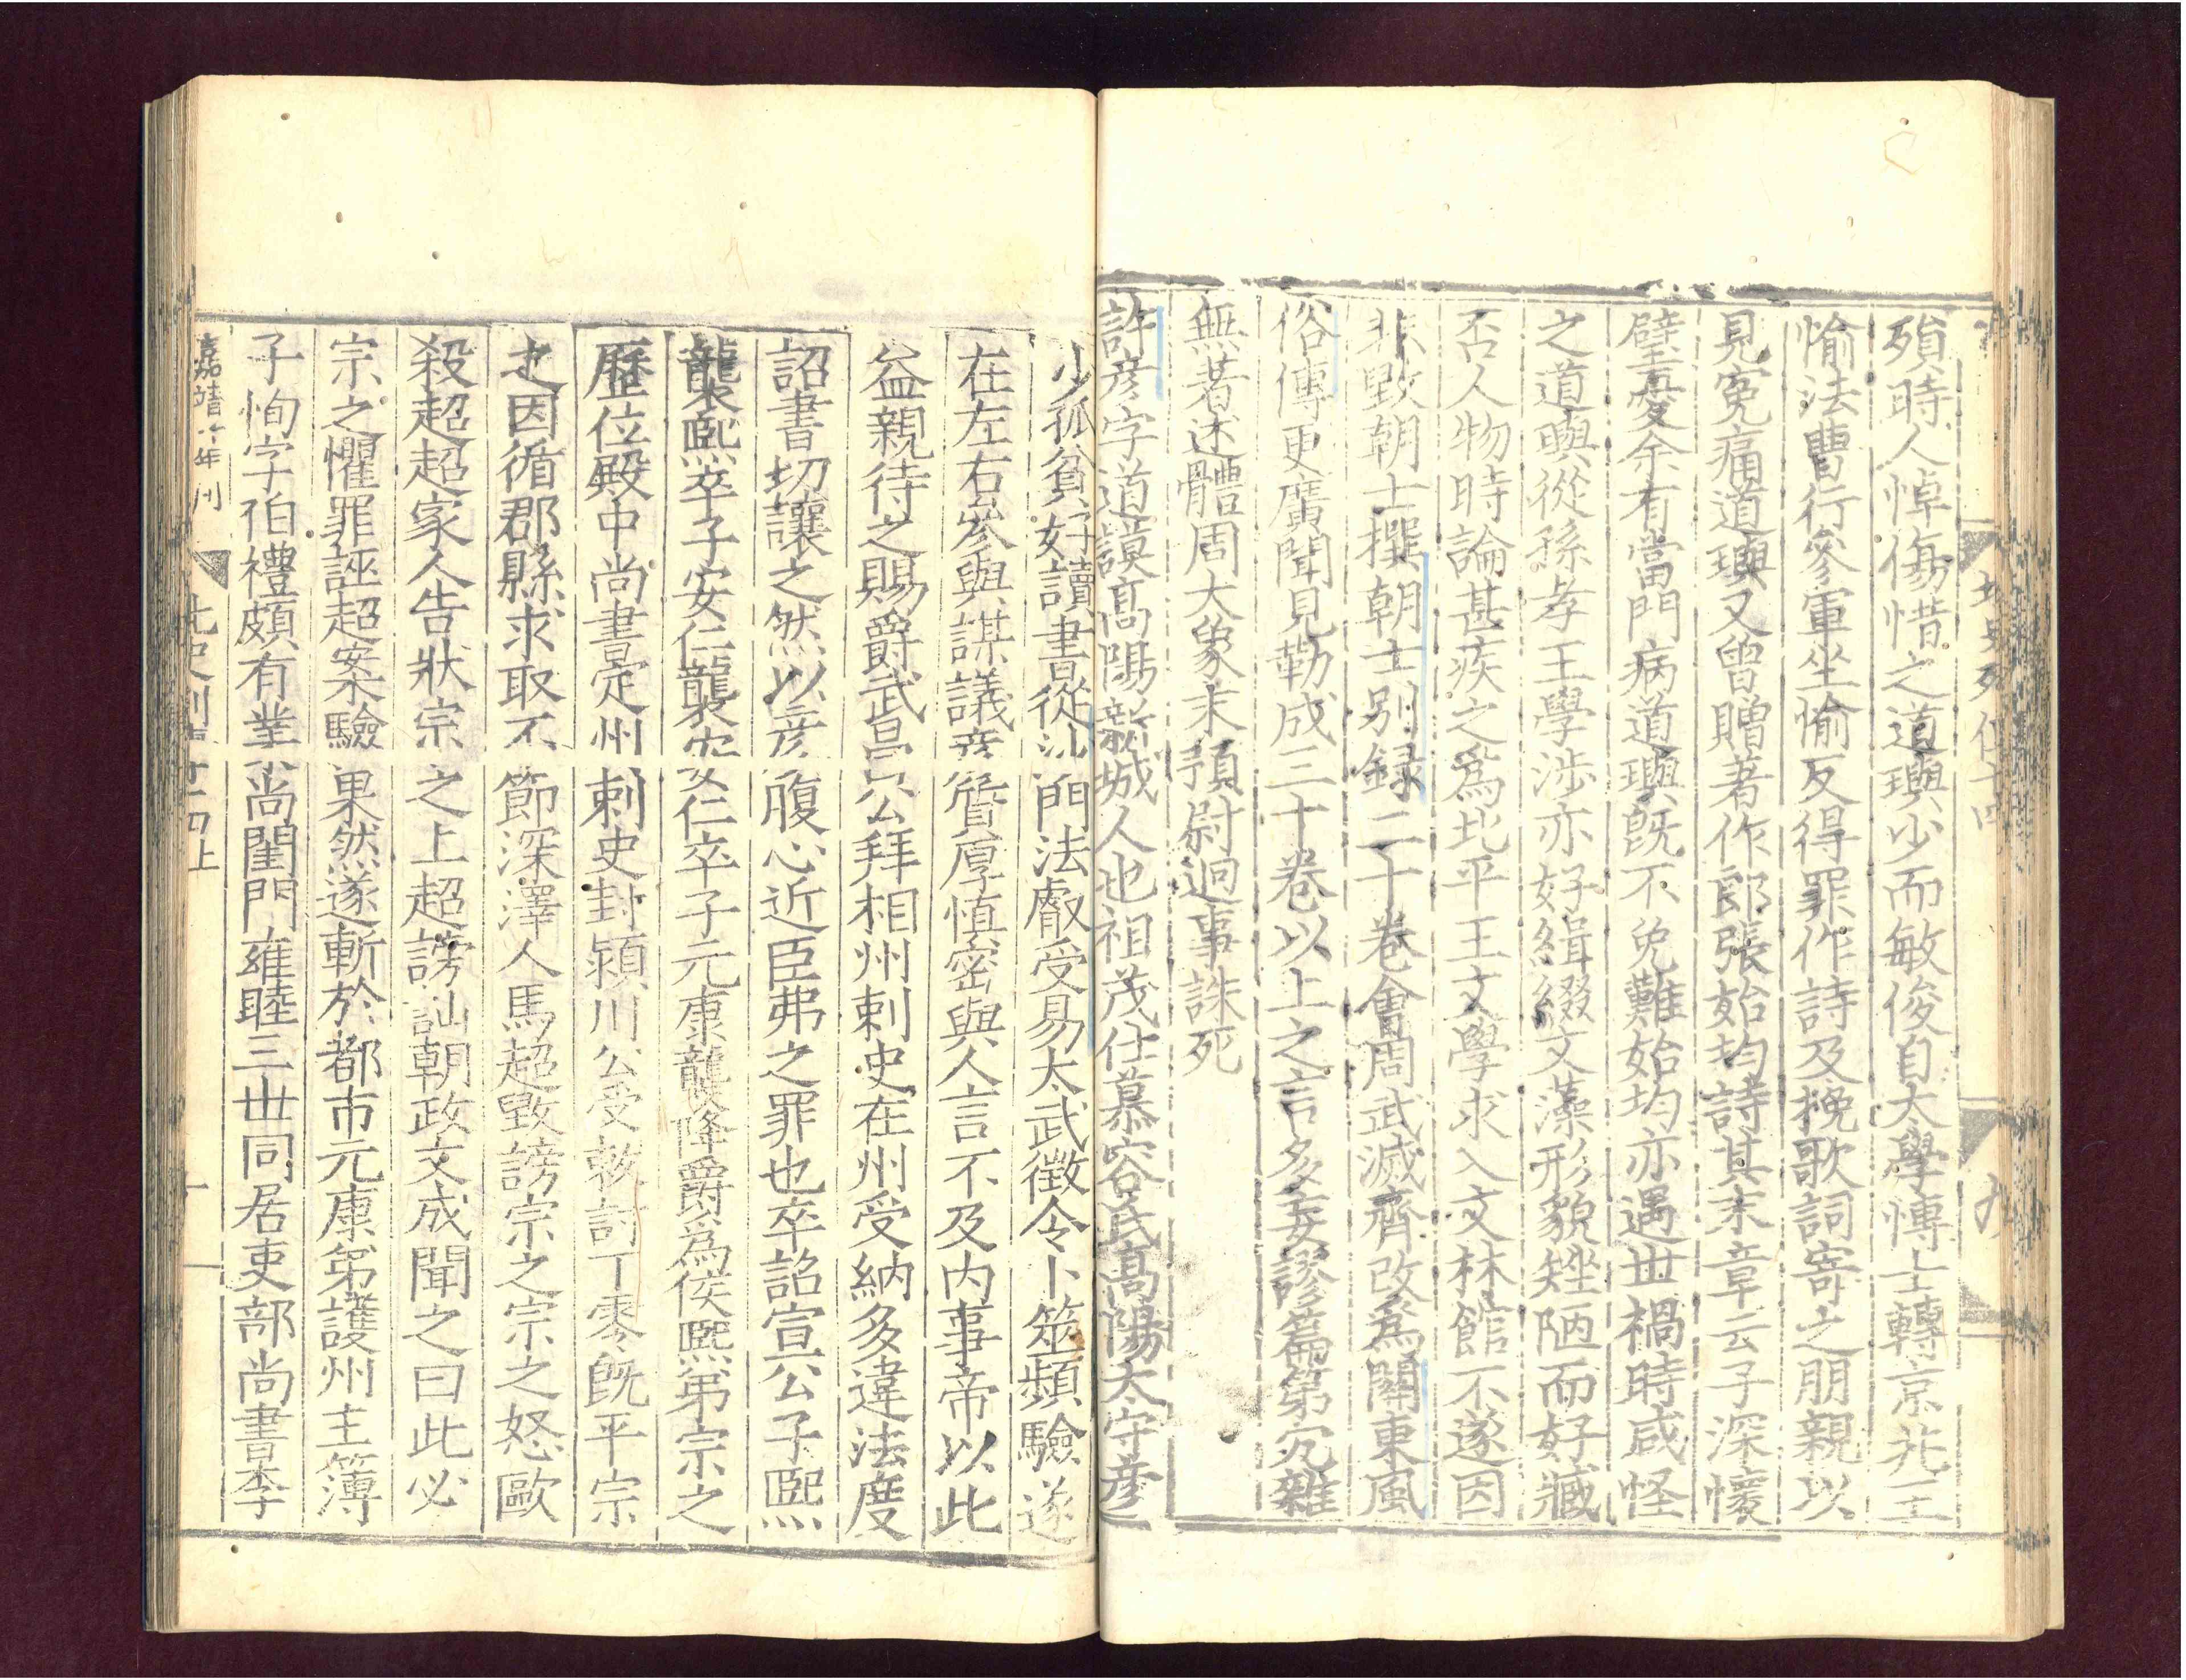 北史列傳十四
九
殞時人悼傷惜之道璵少而敏俊自太學博士轉京兆王
愉法曹行參軍坐愉反得罪作詩及挽歌詞寄之朋親以
見冤痛道璵又曾贈著作郎張始均詩其末章云子深懷
璧憂余有當門病道璵旣不免難始均亦遇世禍時咸怪
之道璵從孫孝王學涉亦好緝綴文藻形貌矬陋而好臧
否人物時論甚疾之爲北平王文學求入文林館不遂因
非毀朝士撰朝士別録二十卷會周武滅齊改爲關東風
俗傳更廣聞見勒成三十卷以上之言多妄謬篇第冗雜
無著述體周大象末預尉迥事誅死
許彦字道謨高陽新城人也祖茂仕慕容氏高陽太守彦
少孤貧好讀書從沙門法叡受易太武徵令卜筮頻驗遂
在左右叅與謀議彦質厚慎密與人言不及内事帝以此
益親待之賜爵武昌公拜相州刺史在州受納多違法度
詔書切讓之然以彦腹心近臣弗之罪也卒謚宣公子熙
襲熙卒子安仁襲安仁卒子元康襲降爵爲侯熙弟宗之
歷位殿中尚書定州刺史封潁川公受敕討丁零旣平宗
之因循郡縣求取不節深澤人馬超毀謗宗之宗之怒毆
殺超超家人告狀宗之上超謗訕朝政文成聞之曰此必
宗之懼罪誣超案驗果然遂斬於都市元康弟護州主簿
子恂字伯禮頗有業尚閨門雍睦三世同居吏部尚書李
嘉靖十年刊
北史列十四上
十